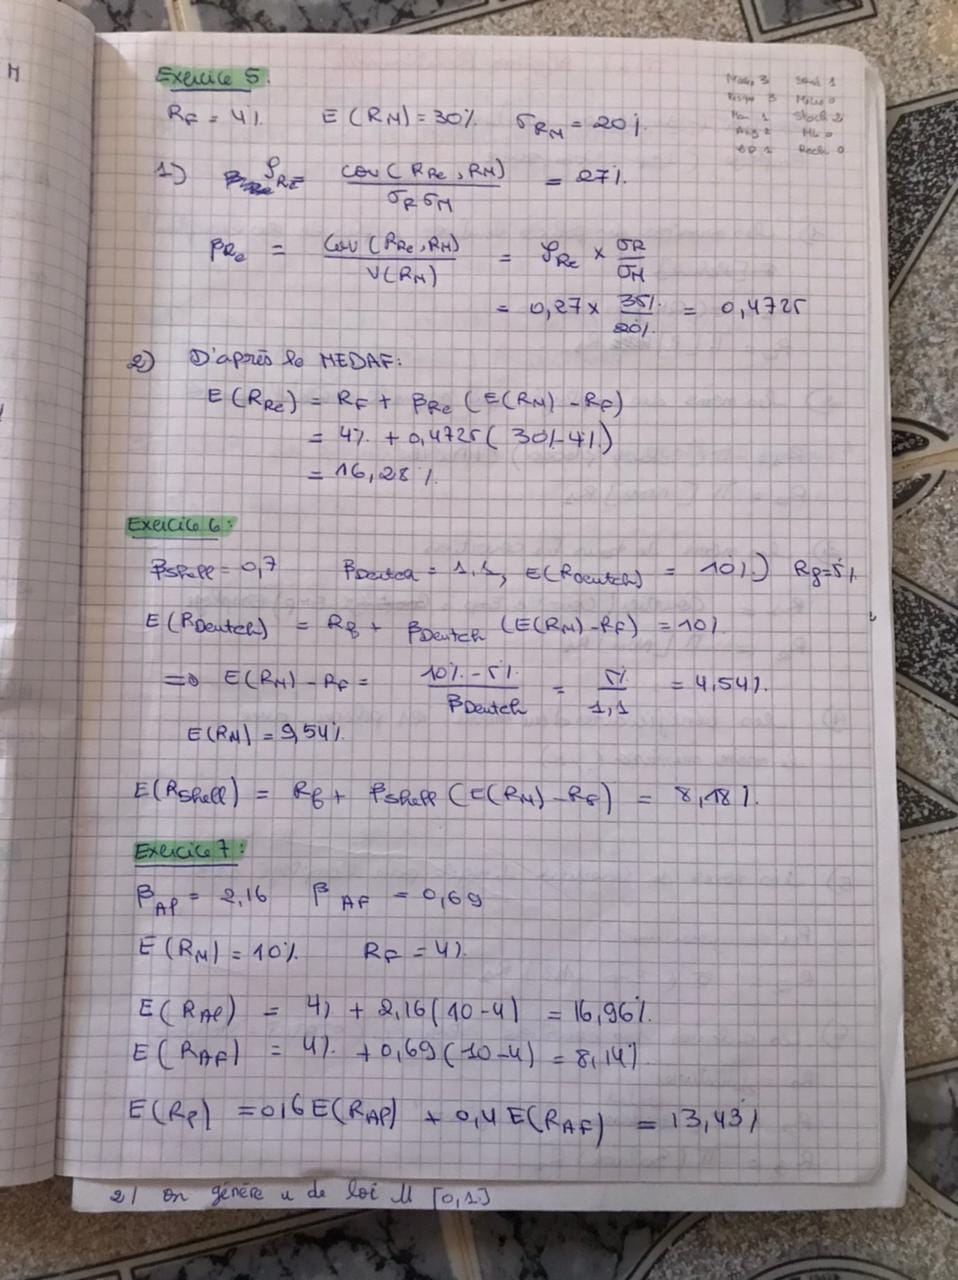 Exercice 5.
RF = 4% E(RM) = 30% σRM = 20%
1) ρRe = cov(RRe, RM) / σR σM = 27%
βRe = Cov(RRe, RM) / V(RM) = ρRe × σR / σM
= 0,27 × 35% / 20% = 0,4725
2) D'après le MEDAF:
E(RRe) = RF + βRe (E(RM) - RF)
= 4% + 0,4725 ( 30% - 4%)
= 16,28%
Exercice 6:
βShell = 0,7 βDeutch = 1,1, E(RDeutch) = 10% Rf = 5%
E(RDeutch) = Rf + βDeutch (E(RM) - RF) = 10%
=> E(RM) - RF = 10% - 5% / βDeutch = 5% / 1,1 = 4,54%
E(RM) = 9,54%
E(Rshell) = Rf + βshell (E(RM) - Rf) = 8,18%
Exercice 7:
βAP = 2,16 βAF = 0,69
E(RM) = 10% RF = 4%
E(RAP) = 4% + 2,16(10-4) = 16,96%
E(RAF) = 4% + 0,69(10-4) = 8,14%
E(RP) = 0,6 E(RAP) + 0,4 E(RAF) = 13,43%
2/ on génère u de loi U [0,1]